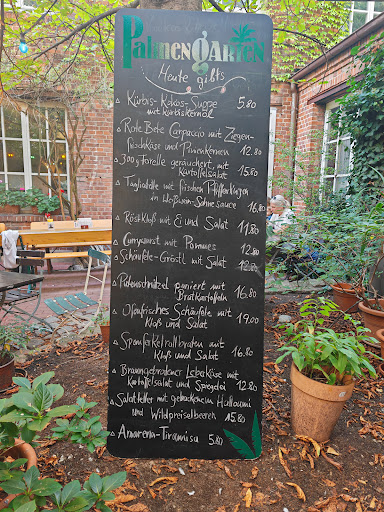 PalmengARTEN
Heute gibts
Kürbis-Kokos-Suppe
mit Kürbiskernöl 5.80
Rote Bete Carpaccio mit Ziegen-
frischkäse und Pinienkernen 12.80
300g Forelle geräuchert, mit
Kartoffelsalat 15.80
Tagliatelle mit frischen Pfifferlingen
in Weißwein-Sahnesauce 16.80
Röstkloß mit Ei und Salat 11.80
Currywurst mit Pommes 12.80
Schäufele-Gröstl mit Salat 12.80
Putenschnitzel paniert mit
Bratkartoffeln 16.80
Ofenfrisches Schäufele mit
Kloß und Salat 19.00
Spanferkelrollbraten mit
Kloß und Salat 16.80
Braungebratener Leberkäse mit
Kartoffelsalat und Spiegelei 12.80
Salatteller mit gebackenem Halloumi
und Wildpreiselbeeren 15.80
Amarena-Tiramisu 5.80